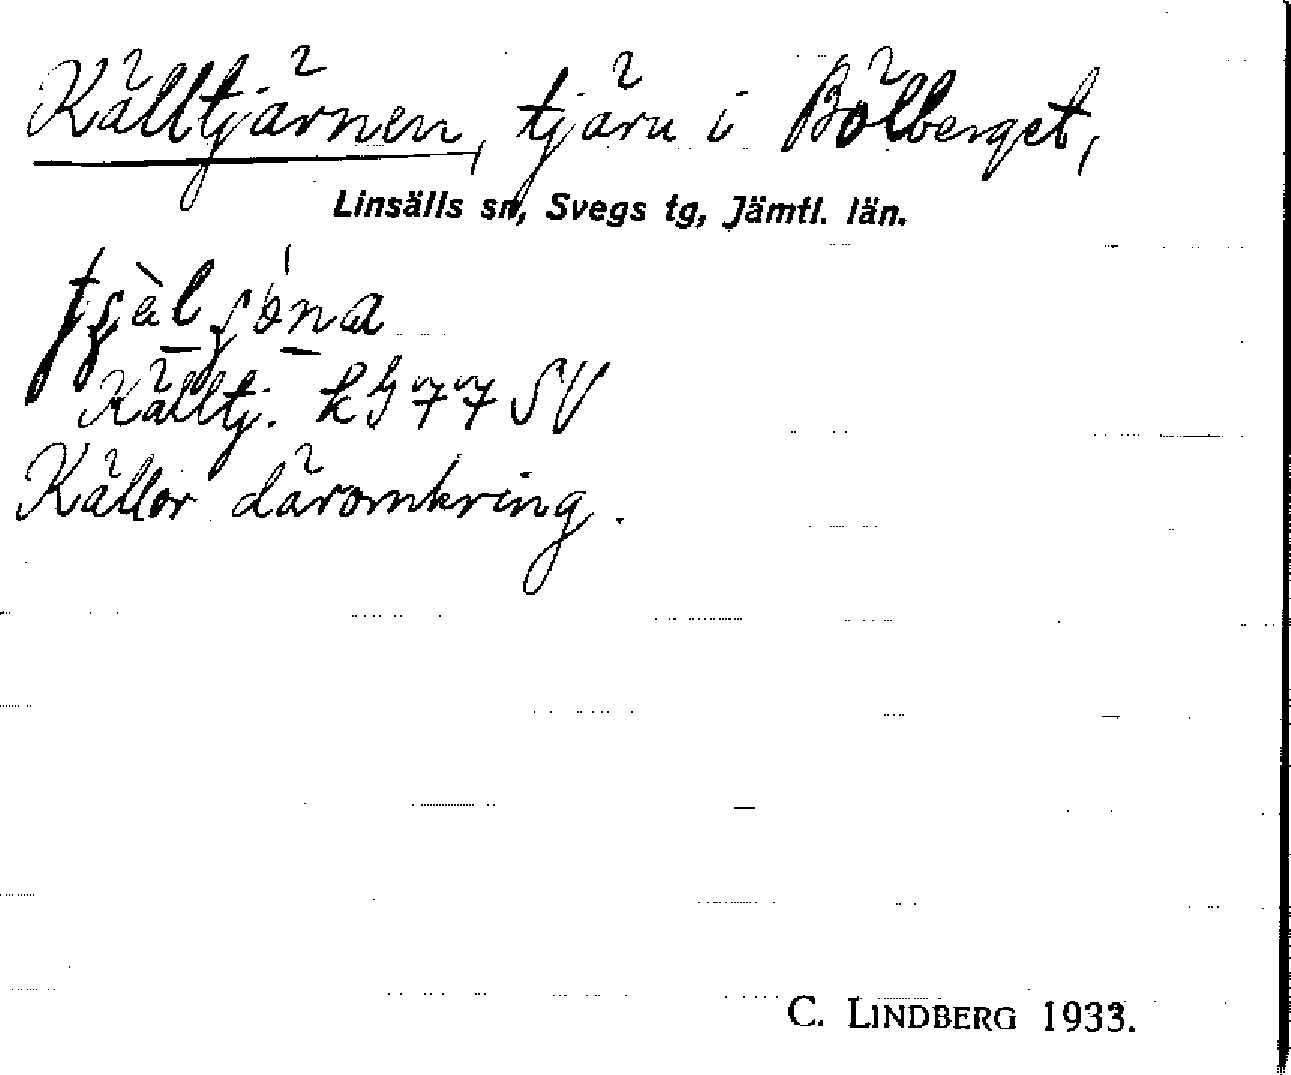 Källtjärnen, tjärn i Bölberget,
Linsälls sn, Svegs tg, Jämtl. län.
Källtj. kg 77 SV
Källor däromkring.
C. LINDBERG 1933.